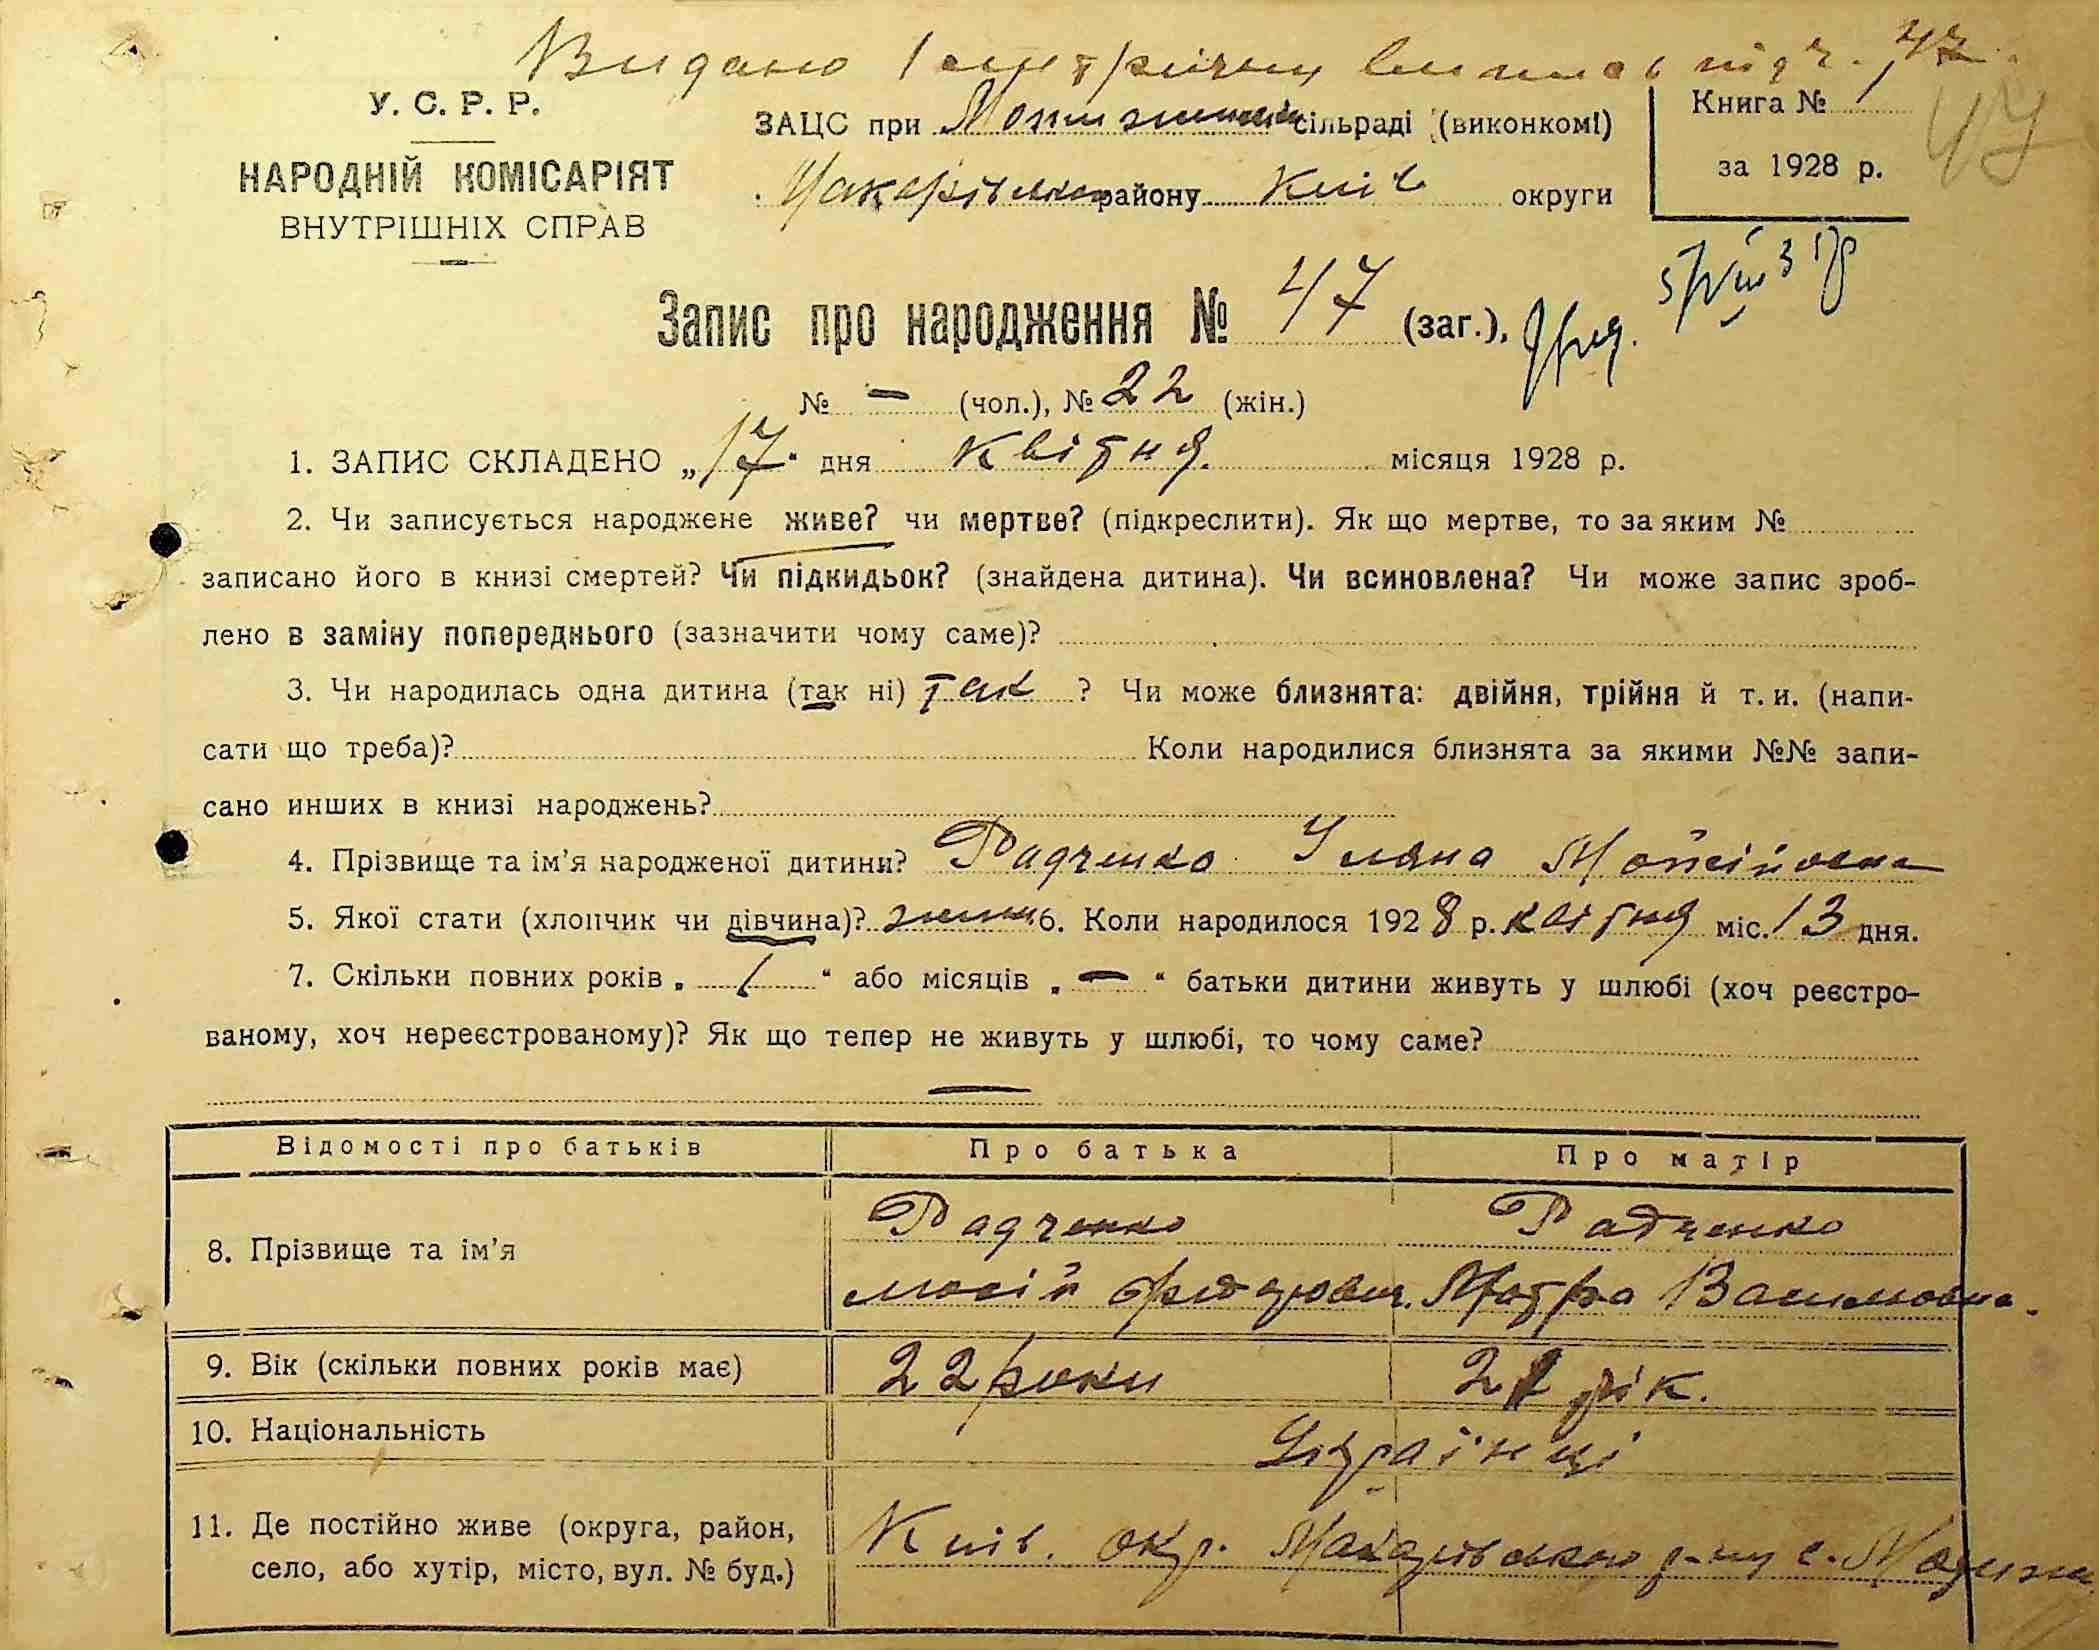 Видано метричну випись під ч. 47.
У. С. Р. Р.
НАРОДНІЙ КОМІСАРІЯТ
ВНУТРІШНІХ СПРАВ
ЗАЦС при Мотиженській сільраді (виконкомі)
Макарівського району Київ округи
Книга № 1
за 1928 р.
47
Запис про народження № 47 (заг.),
№ — (чол.), № 22 (жін.)
1. ЗАПИС СКЛАДЕНО „17“ дня Квітня місяця 1928 р.
2. Чи записується народжене живе? чи мертве? (підкреслити). Як що мертве, то за яким №
записано його в книзі смертей? Чи підкидьок? (знайдена дитина). Чи всиновлена? Чи може запис зроб-
лено в заміну попереднього (зазначити чому саме)?
3. Чи народилась одна дитина (так ні) так ? Чи може близнята: двійня, трійня й т. и. (напи-
сати що треба)? Коли народилися близнята за якими №№ запи-
сано инших в книзі народжень?
4. Прізвище та ім’я народженої дитини? Радченко Уляна Мойсіївна
5. Якої стати (хлопчик чи дівчина)? 6. Коли народилося 1928 р. квітня міс. 13 дня.
7. Скільки повних років „ 1 “ або місяців „ — “ батьки дитини живуть у шлюбі (хоч реєстро-
ваному, хоч нереєстрованому)? Як що тепер не живуть у шлюбі, то чому саме?
—
Відомості про батьків Про батька Про матір
8. Прізвище та ім’я Радченко Радченко
Мосій Федорович. Мотря Василівна.
9. Вік (скільки повних років має) 22 роки 21 рік.
10. Національність Українці
11. Де постійно живе (округа, район,
село, або хутір, місто, вул. № буд.)
Київ. окр. Макарівського р-ну с. Мотижин